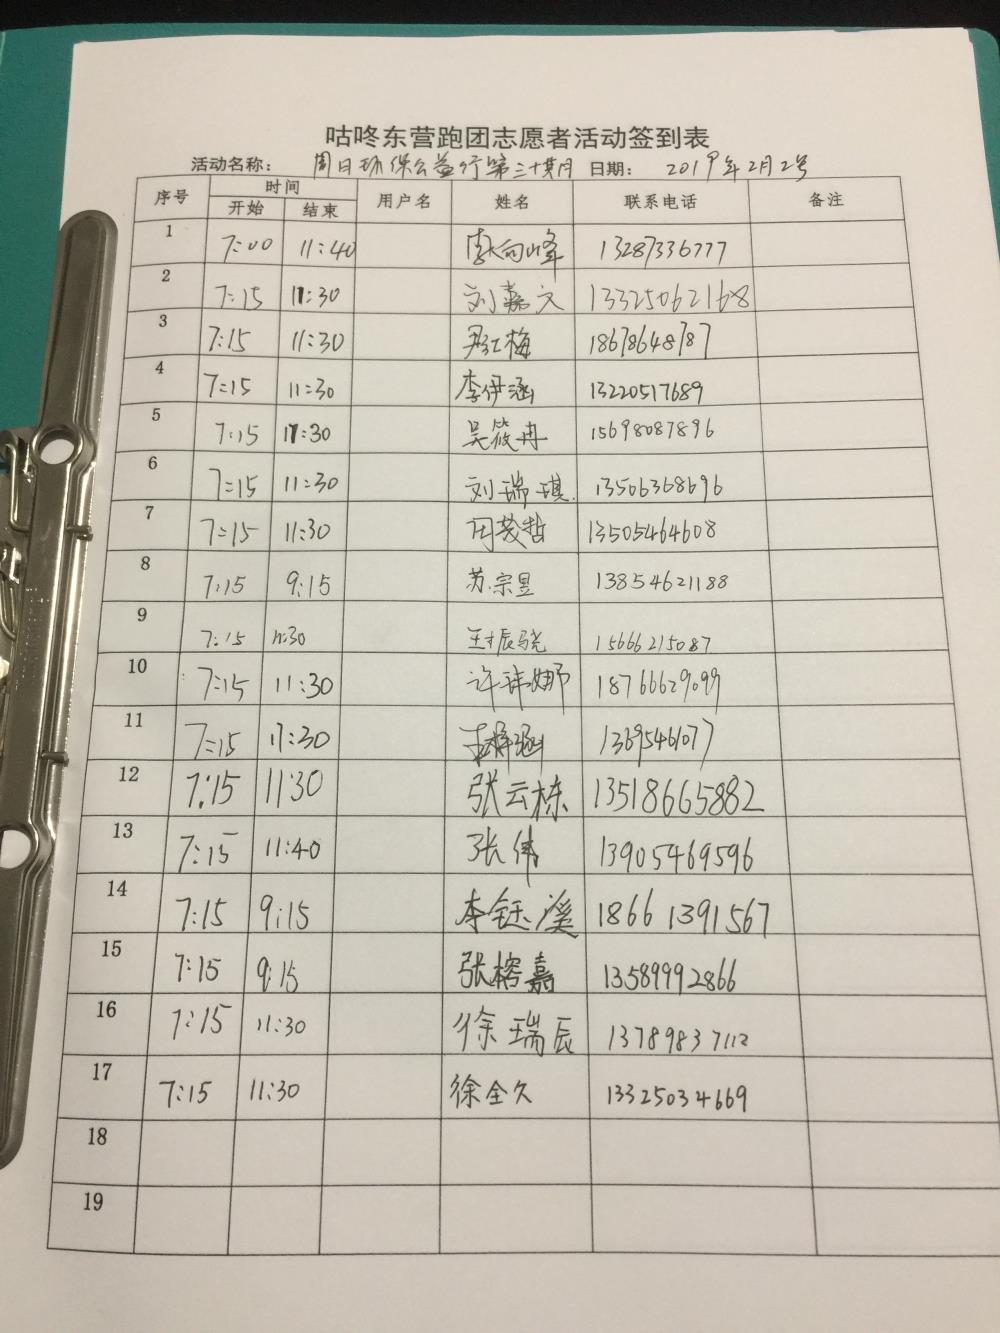 咕咚东营跑团志愿者活动签到表
活动名称： 周日环保公益行第三十期 日期： 2019年2月2号
序号 时间 用户名 姓名 联系电话 备注
开始 结束
1 7:00 11:40 李向峰 13287336777
2 7:15 11:30 刘嘉文 13325062168
3 7:15 11:30 尹红梅 18678648787
4 7:15 11:30 李伊涵 13220517689
5 7:15 11:30 吴筱冉 15698087896
6 7:15 11:30 刘瑞琪 13506368696
7 7:15 11:30 周茂哲 13505464608
8 7:15 9:15 苏宗昱 13854621188
9 7:15 11:30 王振骁 15666215087
10 7:15 11:30 许 娜 18766629099
11 7:15 11:30 涵 13695461077
12 7:15 11:30 张云栋 13518665882
13 7:15 11:40 张伟 13905469596
14 7:15 9:15 李钰溪 18661391567
15 7:15 9:15 张榕嘉 13589992866
16 7:15 11:30 徐瑞辰 13789837112
17 7:15 11:30 徐全久 13325034669
18
19